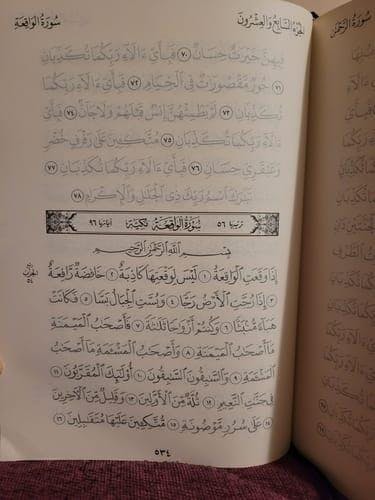 سُورَةُ الرَّحْمَٰن
الجُزْءُ السَّابِعُ وَالعِشْرُونَ
سُورَةُ الوَاقِعَةِ
فِيهِنَّ خَيْرَٰتٌ حِسَانٌ ٧٠ فَبِأَيِّ ءَالَآءِ رَبِّكُمَا تُكَذِّبَانِ
٧١ حُورٌ مَّقْصُورَٰتٌ فِي ٱلْخِيَامِ ٧٢ فَبِأَيِّ ءَالَآءِ رَبِّكُمَا
تُكَذِّبَانِ ٧٣ لَمْ يَطْمِثْهُنَّ إِنسٌ قَبْلَهُمْ وَلَا جَآنٌّ ٧٤ فَبِأَيِّ
ءَالَآءِ رَبِّكُمَا تُكَذِّبَانِ ٧٥ مُتَّكِـِٔينَ عَلَىٰ رَفْرَفٍ خُضْرٍ
وَعَبْقَرِيٍّ حِسَانٍ ٧٦ فَبِأَيِّ ءَالَآءِ رَبِّكُمَا تُكَذِّبَانِ ٧٧
تَبَٰرَكَ ٱسْمُ رَبِّكَ ذِي ٱلْجَلَٰلِ وَٱلْإِكْرَامِ ٧٨
ترتيبها ٥٦ سُورَةُ الوَاقِعَةِ مَكِّيَّة آياتها ٩٦
بِسْمِ ٱللَّهِ ٱلرَّحْمَٰنِ ٱلرَّحِيمِ
إِذَا وَقَعَتِ ٱلْوَاقِعَةُ ١ لَيْسَ لِوَقْعَتِهَا كَاذِبَةٌ ٢ خَافِضَةٌ رَّافِعَةٌ
٣ إِذَا رُجَّتِ ٱلْأَرْضُ رَجًّا ٤ وَبُسَّتِ ٱلْجِبَالُ بَسًّا ٥ فَكَانَتْ
هَبَآءً مُّنۢبَثًّا ٦ وَكُنتُمْ أَزْوَٰجًا ثَلَٰثَةً ٧ فَأَصْحَٰبُ ٱلْمَيْمَنَةِ
مَآ أَصْحَٰبُ ٱلْمَيْمَنَةِ ٨ وَأَصْحَٰبُ ٱلْمَشْـَٔمَةِ مَآ أَصْحَٰبُ
ٱلْمَشْـَٔمَةِ ٩ وَٱلسَّٰبِقُونَ ٱلسَّٰبِقُونَ ١٠ أُو۟لَٰٓئِكَ ٱلْمُقَرَّبُونَ ١١
فِي جَنَّٰتِ ٱلنَّعِيمِ ١٢ ثُلَّةٌ مِّنَ ٱلْأَوَّلِينَ ١٣ وَقَلِيلٌ مِّنَ ٱلْءَاخِرِينَ
١٤ عَلَىٰ سُرُرٍ مَّوْضُونَةٍ ١٥ مُّتَّكِـِٔينَ عَلَيْهَا مُتَقَٰبِلِينَ ١٦
٥٣٤